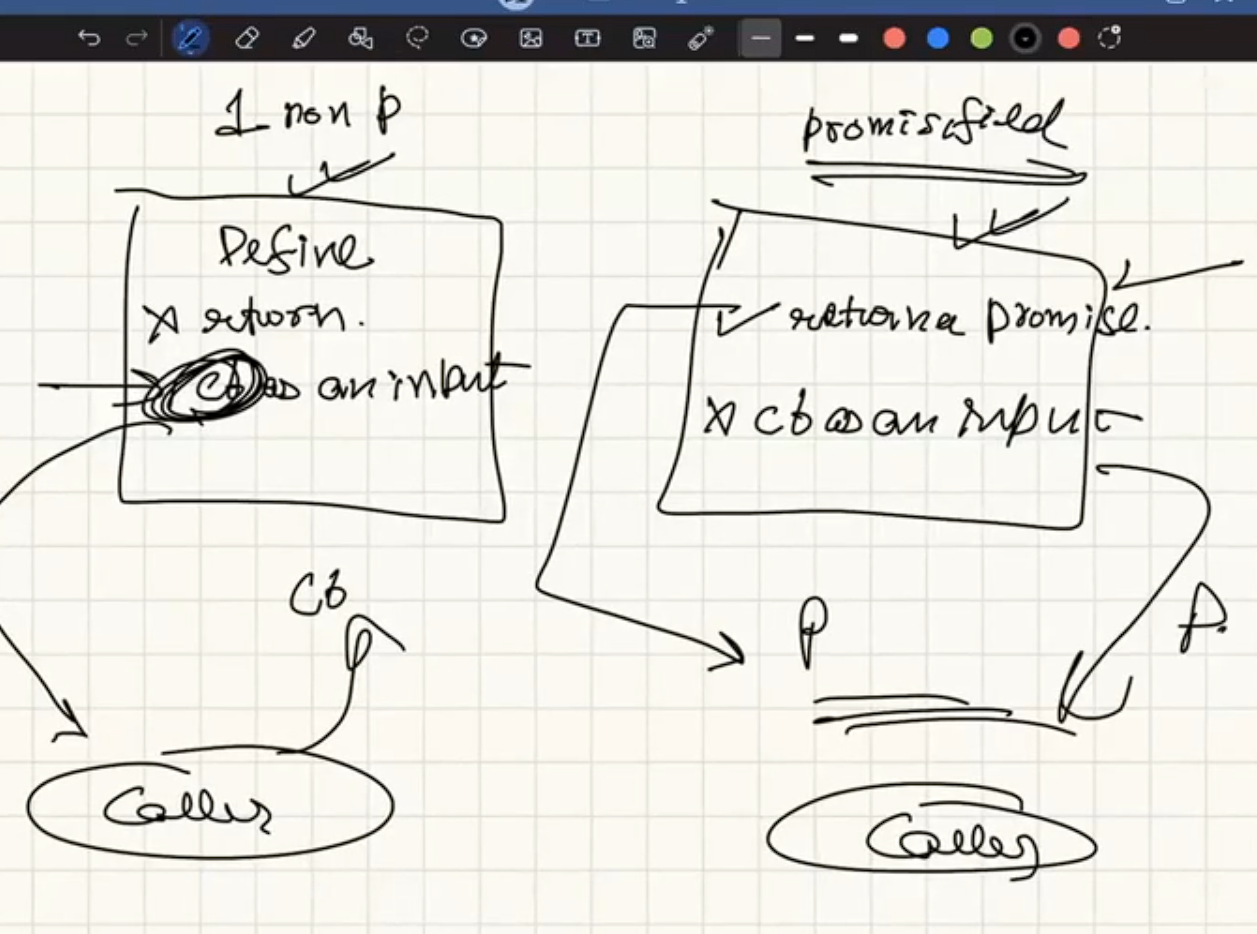 1 non p
Define
x return.
cb as an input
Cb
Caller
promisified
✓ return a promise.
x cb as an input
P
P.
Caller